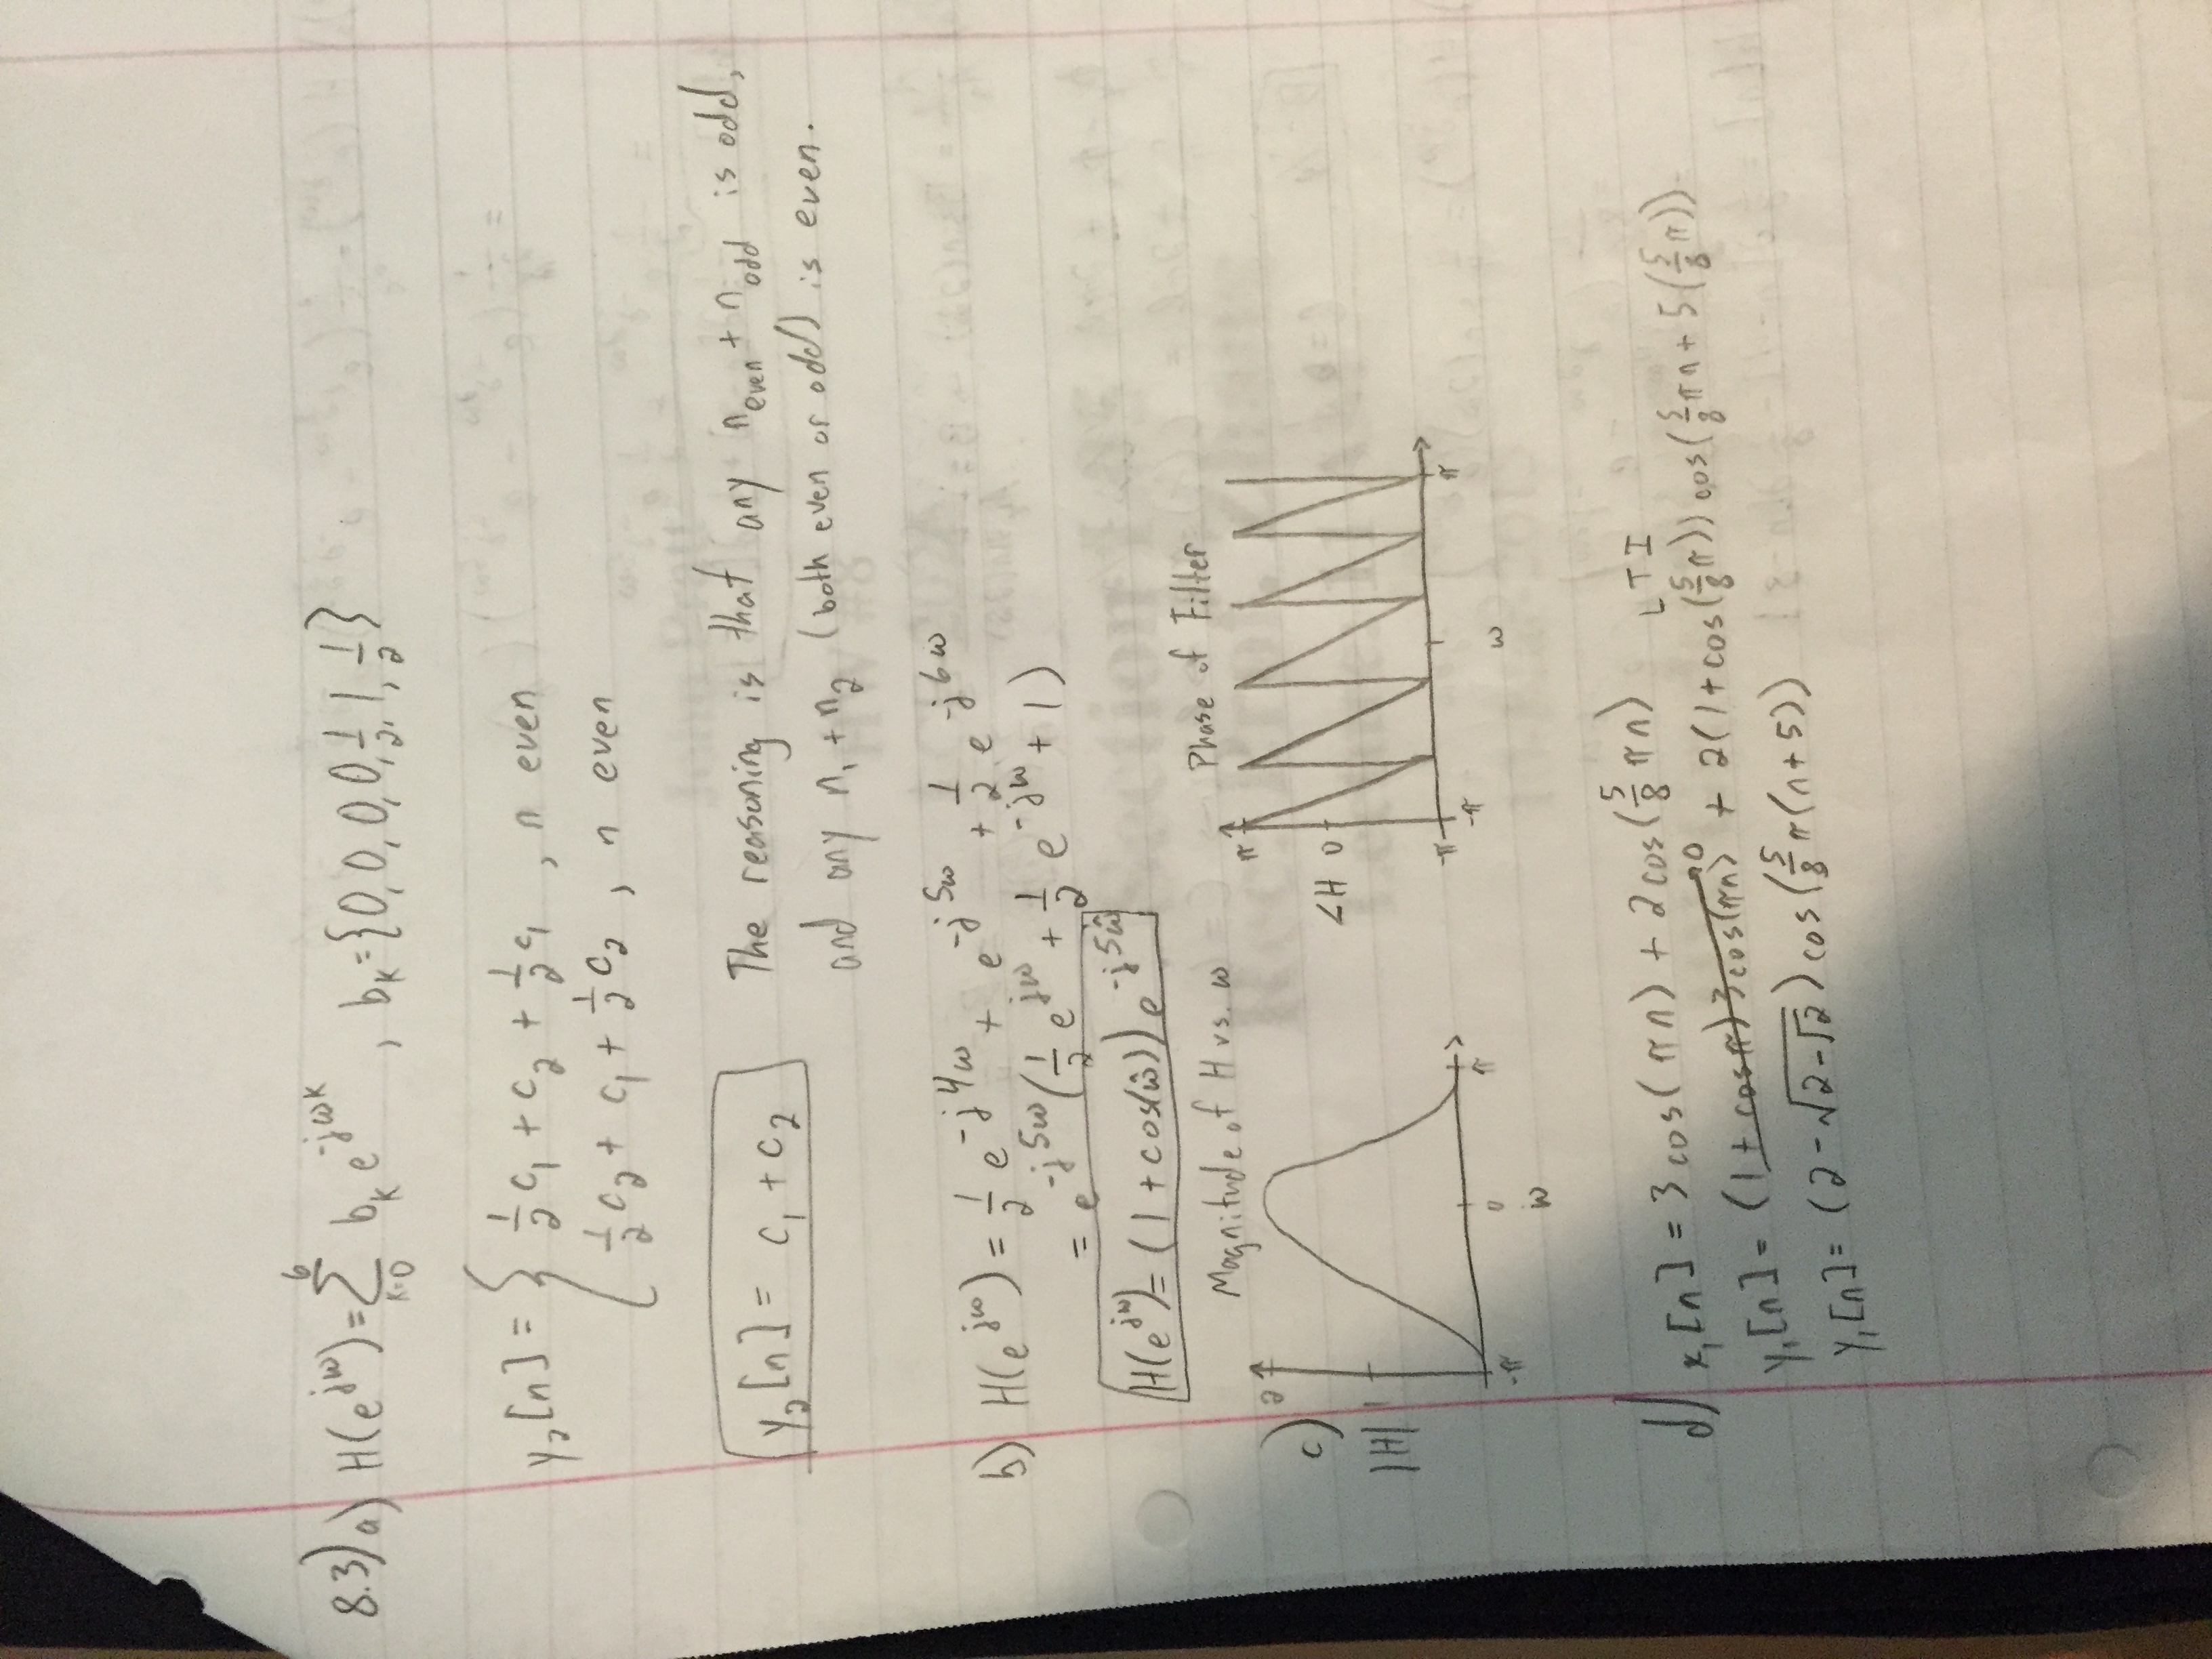 8.3) a) H(e^{jω}) = Σ_{k=0}^{6} b_k e^{-jωk} , b_k = {0, 0, 0, 0, 1/2, 1, 1/2}
y₂[n] = { 1/2 c₁ + c₂ + 1/2 c₁ , n even
1/2 c₂ + c₁ + 1/2 c₂ , n even
y₂[n] = c₁ + c₂
The reasoning is that any n_even + n_odd is odd,
and any n₁ + n₂ (both even or odd) is even.
b) H(e^{jω}) = 1/2 e^{-j4ω} + e^{-j5ω} + 1/2 e^{-j6ω}
= e^{-j5ω} (1/2 e^{jω} + 1/2 e^{-jω} + 1)
H(e^{jω}) = (1 + cos(ω̂)) e^{-j5ω̂}
c)
Magnitude of H vs. ω
2
|H| 1
-π 0 π
ω
Phase of Filter
π
∠H 0
-π
-π π
ω
d) x₁[n] = 3 cos(πn) + 2 cos(5/8 πn) LTI
y₁[n] = (1 + cos π) 3 cos(πn) → 0 + 2(1 + cos(5/8 π)) cos(5/8 πn + 5(5/8 π))
y₁[n] = (2 - √(2 - √2)) cos(5/8 π(n + 5))